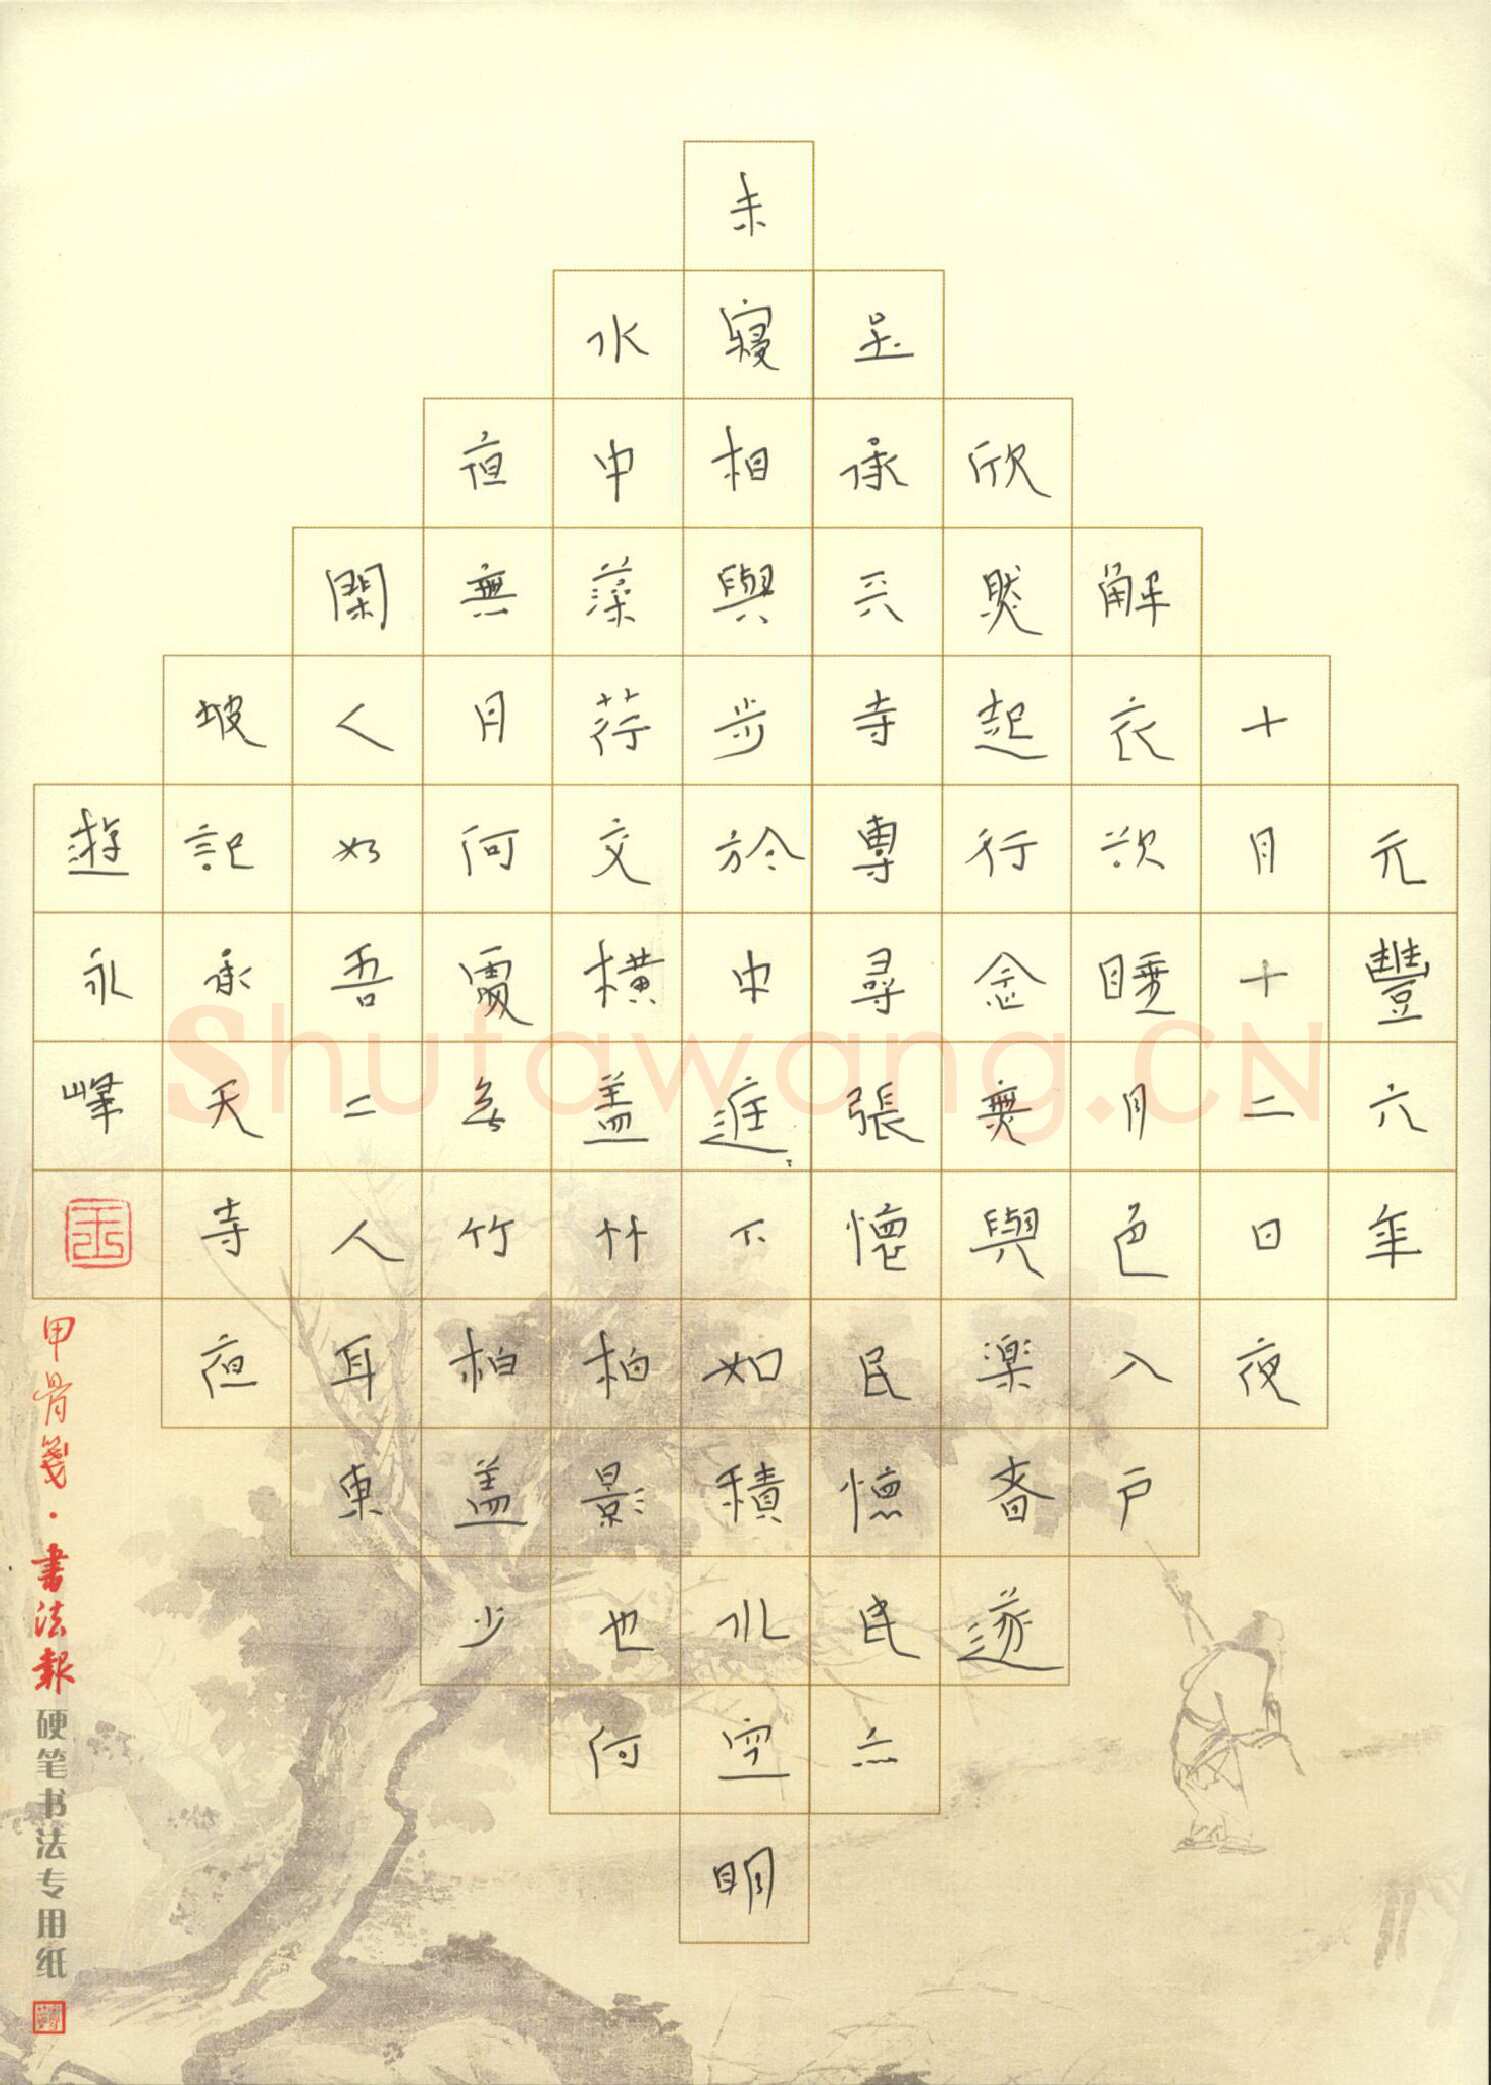 元豐六年
十月十二日夜
解衣欲睡月色入戶
欣然起行念無與楽者遂
至承天寺專尋張懷民懷民亦
未寢相與步於中庭下如積水空明
水中藻荇交橫盖竹柏影也何
夜無月何處無竹柏盖少
閑人如吾二人耳東
坡記承天寺夜
遊永峰
甲骨箋·書法報硬笔书法专用纸
Shufawang.CN